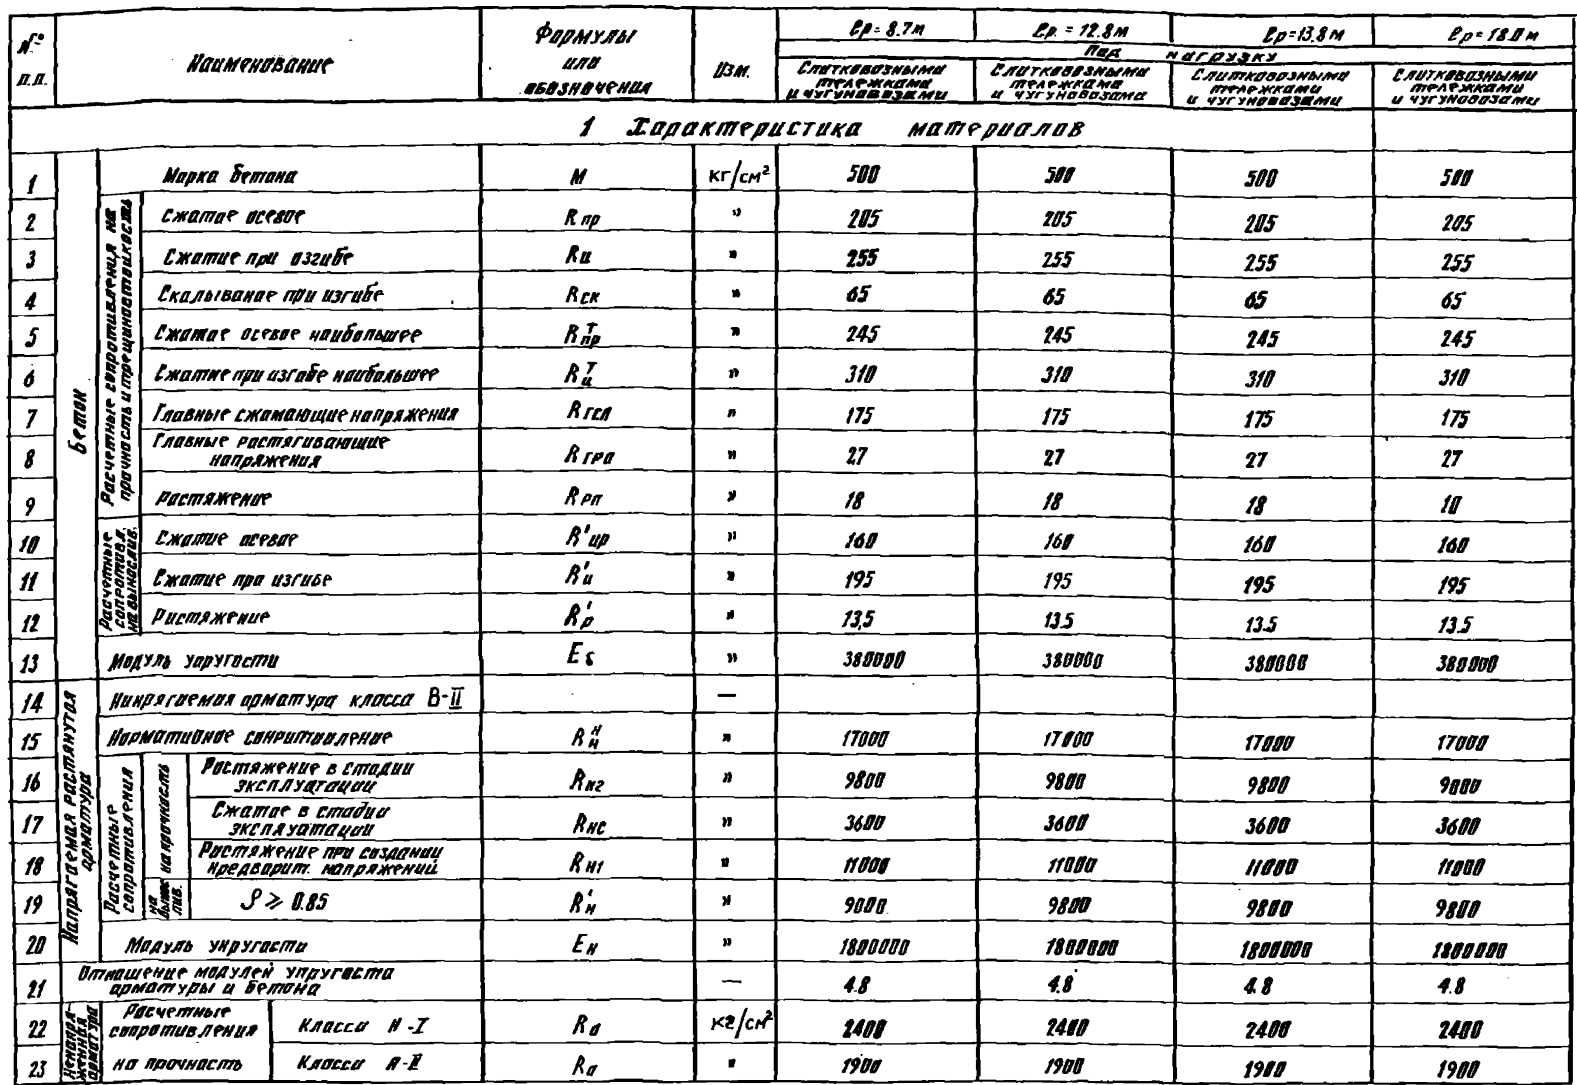 № п.п. Наименование Формулы или обозначения Изм. ℓр = 8.7 м ℓр. = 12.8 м ℓр = 13.8 м ℓр = 18.0 м
Под нагрузку
Слитковозными тележками и чугуновозами Слитковозными тележками и чугуновозами Слитковозными тележками и чугуновозами Слитковозными тележками и чугуновозами
1 Характеристика материалов
Бетон
1 Марка бетона М кг/см² 500 500 500 500
Расчетные сопротивления на прочность и трещиностойкость
2 Сжатие осевое Rпр " 205 205 205 205
3 Сжатие при изгибе Rи " 255 255 255 255
4 Скалывание при изгибе Rск " 65 65 65 65
5 Сжатие осевое наибольшее Rᵀпр " 245 245 245 245
6 Сжатие при изгибе наибольшее Rᵀи " 310 310 310 310
7 Главные сжимающие напряжения Rгсл " 175 175 175 175
8 Главные растягивающие напряжения Rгра " 27 27 27 27
9 Растяжение Rрп " 18 18 18 10
Расчетные сопротивл. на выносливо.
10 Сжатие осевое R'пр " 160 160 160 160
11 Сжатие при изгибе R'и " 195 195 195 195
12 Ристяжение R'р " 13,5 13.5 13.5 13.5
13 Модуль упругости Eб " 380000 380000 380000 380000
Напрягаемая растянутая арматура
14 Нинрягаемая арматура класса В-II —
15 Нормативное сопротивление Rᴴн " 17000 17000 17000 17000
Расчетные сопротивления
на прочность
16 Растяжение в стадии эксплуатации Rн2 " 9800 9800 9800 9000
17 Сжатие в стадии эксплуатации Rнс " 3600 3600 3600 3600
18 Ристяжение при создании предварит. напряжений Rн1 " 11000 11000 11000 11000
на вынос лив.
19 ρ ⩾ 0.85 R'н " 9000 9800 9800 9800
20 Модуль упругости Eн " 1800000 1800000 1800000 1800000
21 Отношение модулей упругости арматуры и бетона — 4.8 4.8 4.8 4.8
Ненапряженная арматура
Расчетные сопротивления на прочность
22 Класса А-I Rа кг/см² 2400 2400 2400 2400
23 Класса А-II Rа " 1900 1900 1900 1900